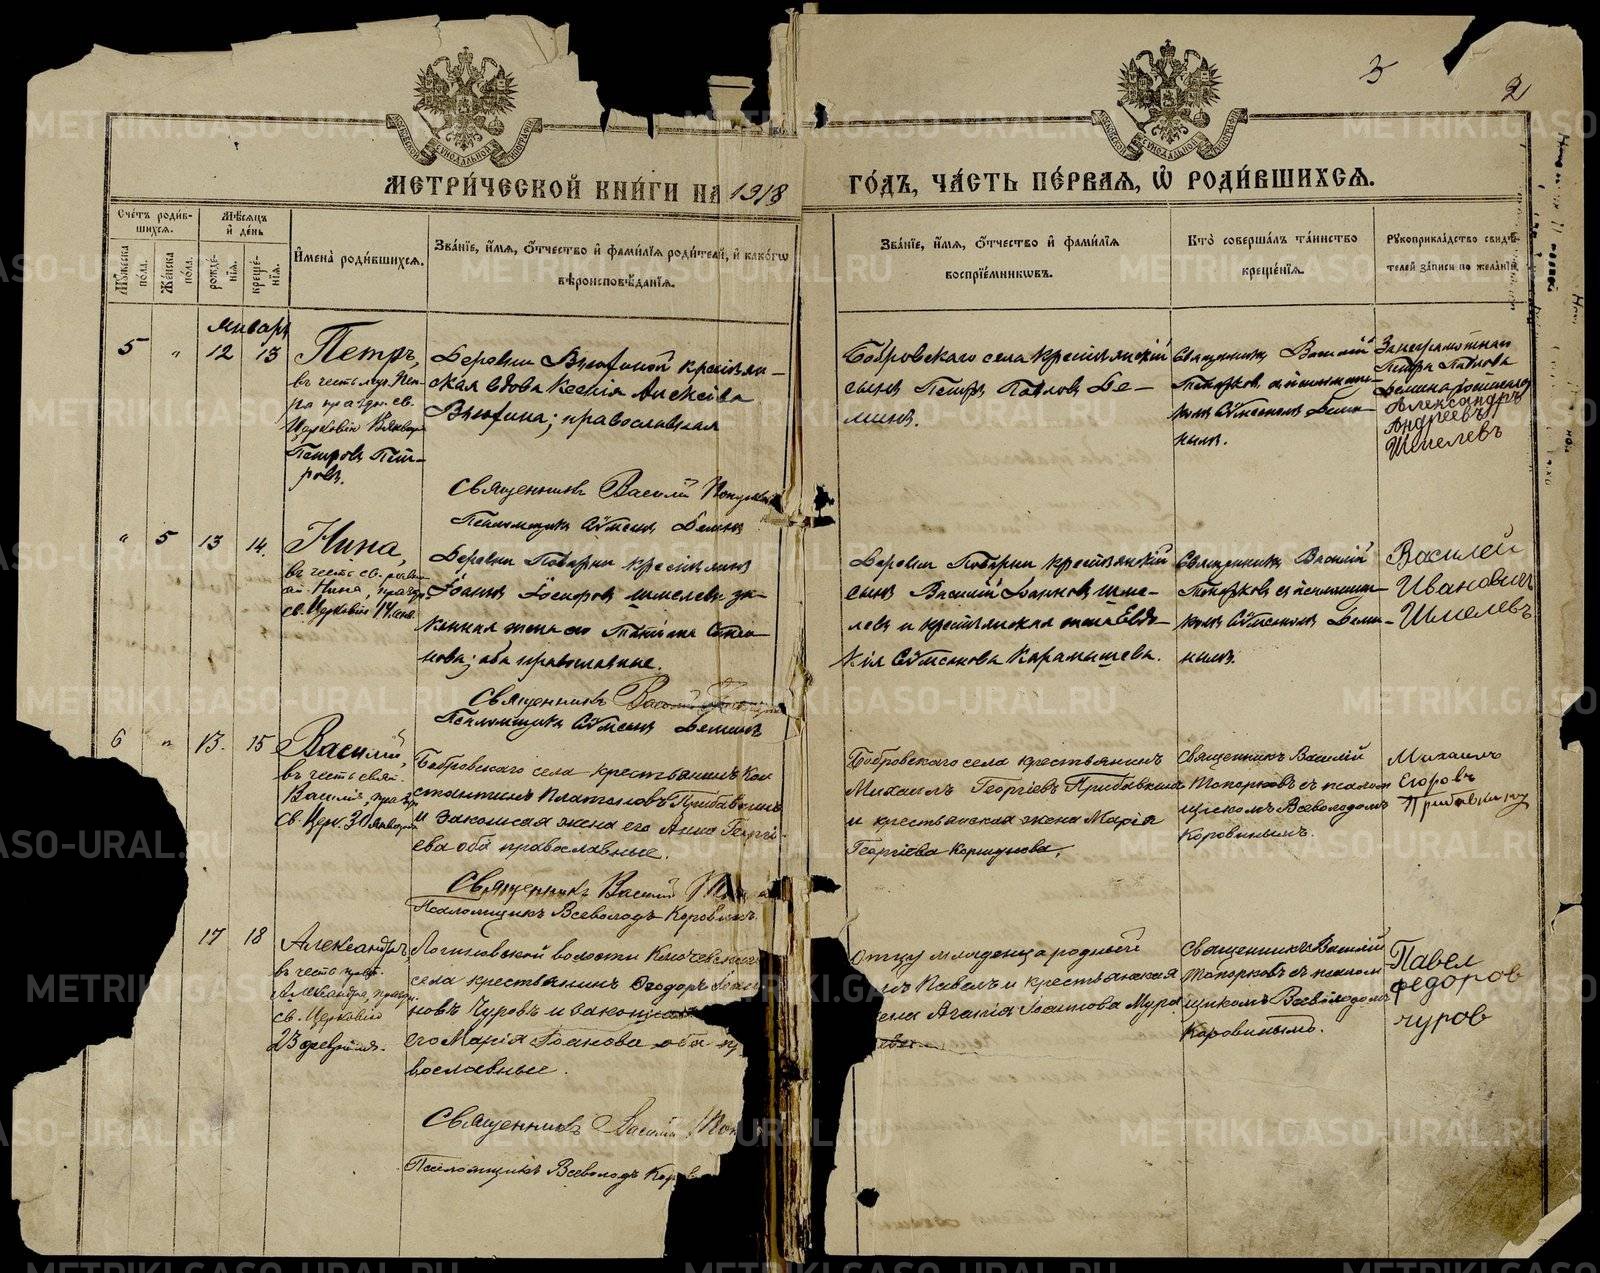 3
2
МОСКОВСКОЙ СѴНОДАЛЬНОЙ ТИПОГРАФІИ
МОСКОВСКОЙ СѴНОДАЛЬНОЙ ТИПОГРАФІИ
МЕТРИ́ЧЕСКОЙ КНИ́ГИ НА 1918 ГО́ДЪ, ЧА́СТЬ ПЕ́РВАЯ, Ѡ҆ РОДИ́ВШИХСЯ.
Сче́тъ роди́в-
шихся.
Мѣ́сяцъ
и҆ де́нь
Му́жеска
пола.
Же́нска
пола.
рожде́-
нїя.
креще́-
нїя.
И҆мена̀ роди́вшихся.
Зва́нїе, и҆́мя, ѻ҆́тчество и҆ фами́лїя роди́телей, и҆ како́гѡ
вѣроисповѣ́данїя.
Зва́нїе, и҆́мя, ѻ҆́тчество и҆ фами́лїя
воспрїе́мникѡвъ.
Кто̀ соверша́лъ та́инство
креще́нїя.
Рукоприкла́дство свидѣ́-
телей за́писи по жела́нїю.
Январь
5 " 12 13
Петръ,
въ честь
св.
Церковію
Петровъ Пет-
ровъ.
Деревни Вьюхиной крестьян-
ская вдова Ксенія Алексѣева
Вьюхина; православная
Священникъ Василій
Псаломщикъ Сѵмеонъ Деминъ
Бобровскаго села крестьянскій
сынъ Петръ Павловъ Де-
минъ.
Священникъ Василій
Топорковъ съ псаломщи-
комъ Сѵмеономъ Деми-
нымъ.
За неграмотнаго
Петра Павлова
Демина росписался
Александръ
Андреевъ
Шмелевъ
" 5 13 14.
Нина,
въ честь св. равн
ап. Нины, празд.
св. Церковію 14 янв.
Деревни Поварни крестьянинъ
Іоаннъ Іосифовъ Шмелевъ за-
конная жена его Татіана Стефа-
нова; оба православные.
Священникъ Василій
Псаломщикъ Сѵмеонъ Деминъ
Деревни Поварни крестьянскій
сынъ Василій Іоанновъ Шме-
левъ и крестьянская жена Евдо-
кія Сѵмеонова Карамышева.
Священникъ Василій
Топорковъ съ псаломщи-
комъ Сѵмеономъ Деми-
нымъ.
Василей
Ивановичъ
Шмелевъ
6 " 13. 15
Василій,
въ честь свят.
Василія, празд.
св. Церк. 30 января
Бобровскаго села крестьянинъ Кон
стантинъ Платоновъ Прибавкинъ
и законная жена его Анна Георгі-
ева оба православные.
Священникъ Василій
Псаломщикъ Всеволодъ Коровинъ.
Бобровскаго села крестьянинъ
Михаилъ Георгіевъ Прибавкинъ
и крестьянская жена Марія
Георгіева Коршунова.
Священникъ Василій
Топорковъ съ псалом
щикомъ Всеволодомъ
Коровинымъ.
Михаилъ
Егоровъ
Прибавкинъ
17 18
Александръ
въ честь
Александра, празд.
св. Церковію
23 февраля.
Логиновской волости Ключевскаго
села крестьянинъ Ѳеодоръ
новъ Чуровъ и законная
его Марія Іоанова оба п
вославные.
Священникъ Василій Топ
Псаломщикъ Всеволодъ Коров
Отцу младенца родный
Павелъ и крестьянская
Агапія Іоаннова
Священникъ Василій
Топорковъ съ псалом
щикомъ Всеволодомъ
Коровинымъ.
Павел
федоров
чуров
METRIKI.GASO-URAL.RU